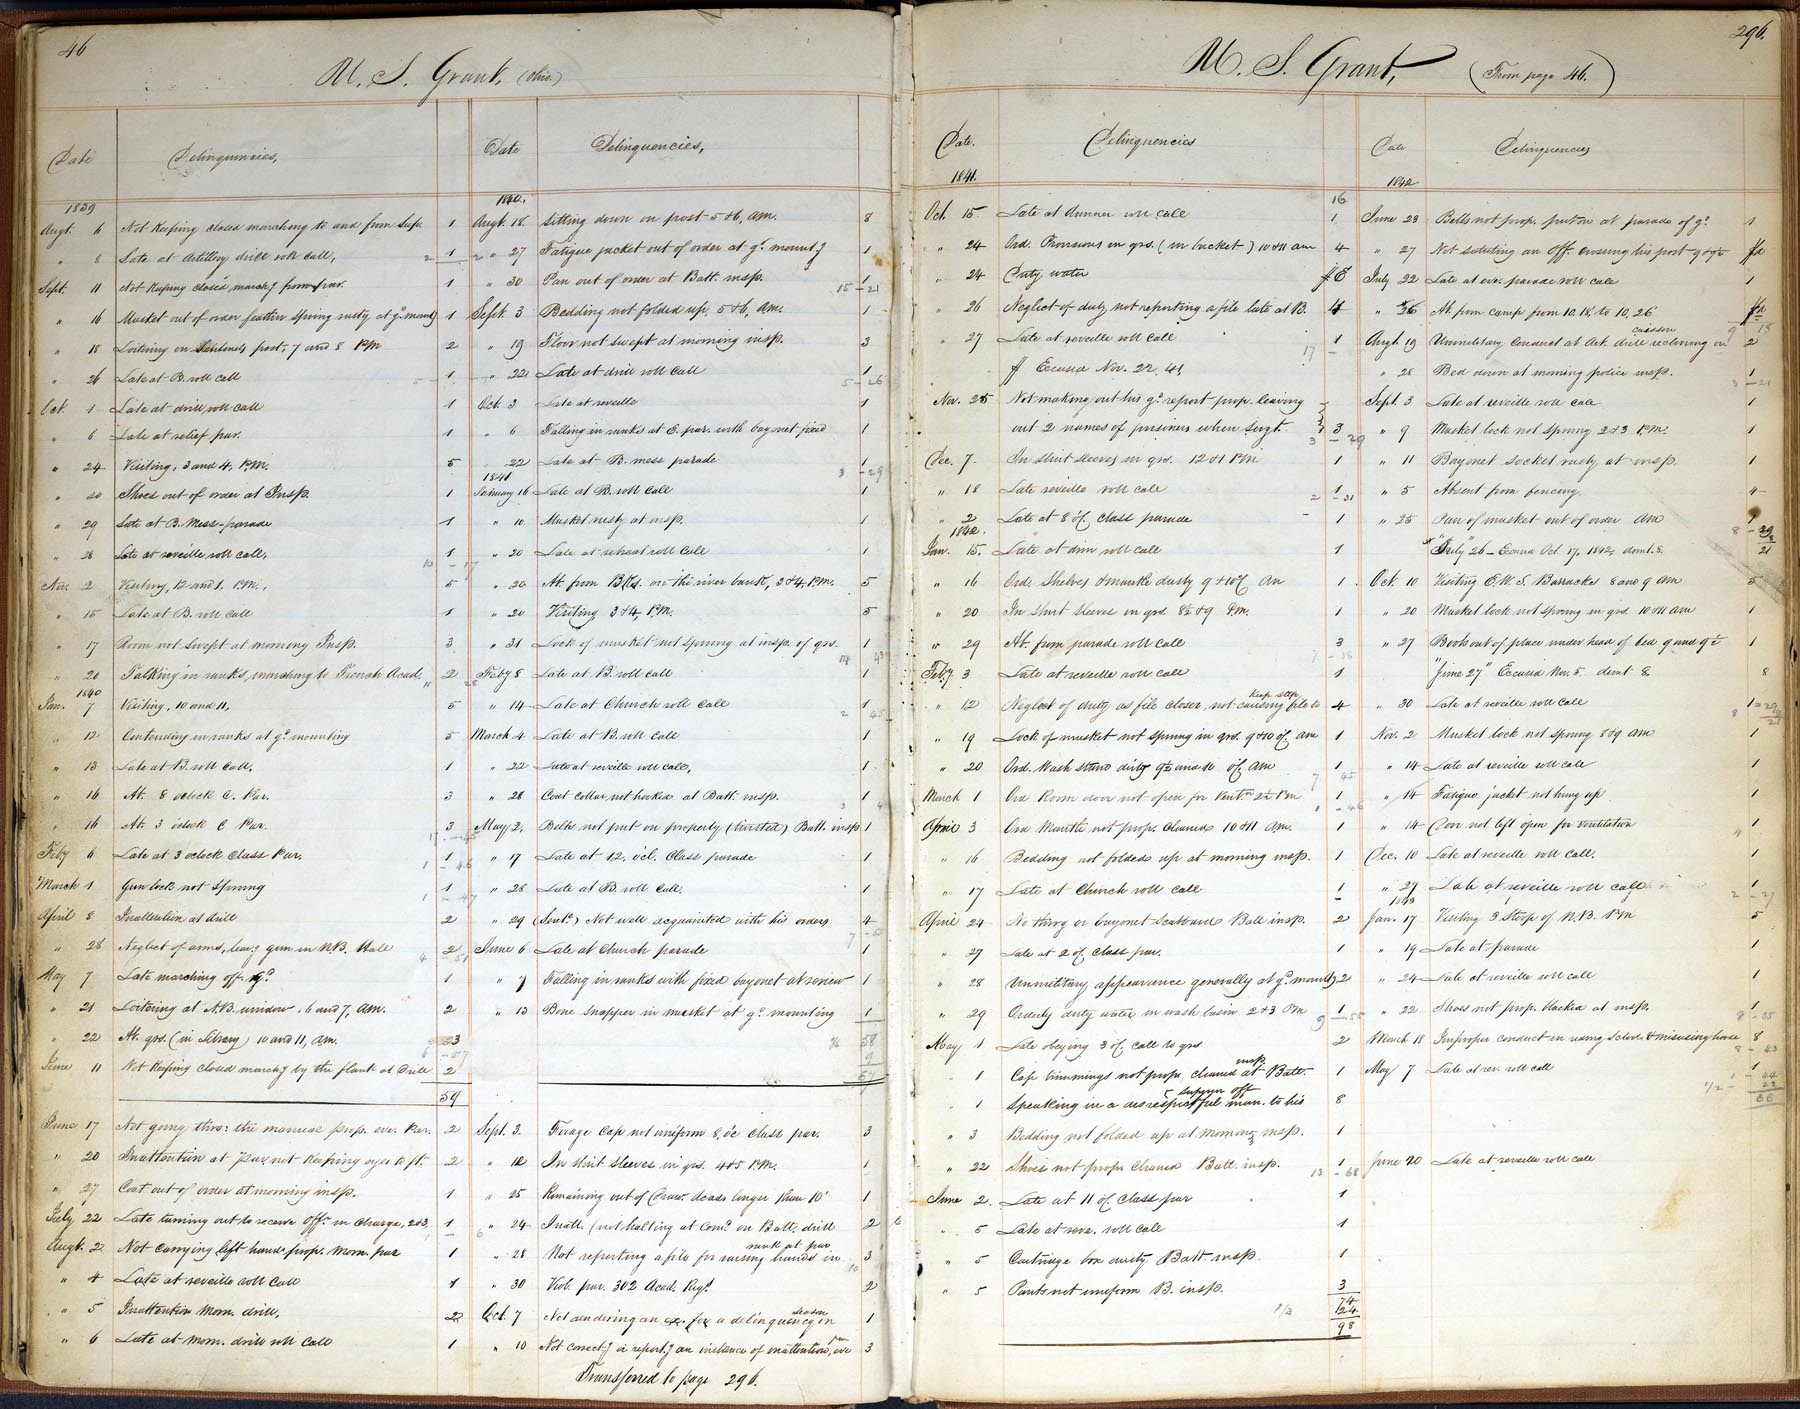 46
U. S. Grant, (Ohio.)
Date
Delinquencies,
1839
Augt. 6 Not keeping closed marching to and from Sup. 1
" 8 Late at Artillery drill roll call, 1
Sept. 11 Not keeping closed march'g from par. 1
" 16 Musket out of order feather spring rusty at gd. mountg 1
" 18 Loitering on Sentinels post, 7 and 8 P.M. 2
" 26 Late at B. roll call 1
Oct. 1 Late at drill roll call 1
" 6 Late at relief par. 1
" 24 Visiting, 3 and 4, P.M. 5
" 20 Shoes out of order at Insp. 1
" 29 Late at B. Mess-parade 1
" 28 Late at reveille roll call. 1
Nov. 2 Visiting, 12 and 1, P.M., 5
" 15 Late at B. roll call 1
" 17 Room not swept at morning Insp. 3
" 20 Talking in ranks, marching to French Acad. 2
1840
Jan. 7 Visiting, 10 and 11, 5
" 12 Contending in ranks at gd. mounting 5
" 13 Late at B. roll call. 1
" 16 Ab. 8 oclock C. Par. 3
" 16 Ab. 3 oclock C Par. 3
Feby 6 Late at 3 oclock Class Par. 1
March 1 Gun lock not sprung 1
April 8 Inattention at drill 2
" 28 Neglect of arms, leavg gun in N.B. Hall 2
May 7 Late marching off gd. 1
" 21 Loitering at N.B. window, 6 and 7, A.M. 2
" 22 Ab. qrs. (in Library) 10 and 11, A.M. 3
June 11 Not keeping closed marchg by the flank at Drill 2
59
June 17 Not going thro: the manual prop. eve. Par. 2
" 20 Inattention at Par. not keeping eyes to ft. 2
" 27 Coat out of order at morning insp. 1
July 22 Late turning out to receive Offr. in Charge, 2&3, 1
Augt. 2 Not carrying left hand prop. Morn. par 1
" 4 Late at reveille roll call 1
" 5 Inattention Morn. drill, 2
" 6 Late at Morn. drill roll call 1
Date
Delinquencies,
1840.
Augt. 18. Sitting down on post 5&6, A.M. 8
" 27 Fatigue jacket out of order at gd. mount'g 1
" 30 Pan out of order at Batt. insp. 1
Sept. 3 Bedding not folded up, 5&6, A.M. 1
" 19 Floor not swept at morning insp. 3
" 22 Late at drill roll call 1
Oct. 3 Late at reveille 1
" 6 Falling in ranks at E. par. with bayonet fixed 1
" 22 Late at B. mess parade 1
1841
January 16 Late at B. roll call 1
" 10 Musket rusty at insp. 1
" 20 Late at retreat roll call 1
" 20 Ab. from Bks. on the river bank, 2&4, P.M. 5
" 20 Visiting 3&4, P.M. 5
" 31 Lock of musket not sprung at insp. of qrs. 1
Feby 8 Late at B. roll call 1
" 14 Late at Church roll call 1
March 4 Late at B. roll call 1
" 22 Late at reveille roll call, 1
" 28 Coat Collar not hooked at Batt. insp. 1
May 2, Belts not put on properly (twisted) Batt. insp 1
" 17 Late at 12. o'cl. Class parade 1
" 28 Late at B. roll call. 1
" 29 (Sentl.) Not well acquainted with his orders 4
June 6 Late at Church parade 1
" 7 Falling in ranks with fixed bayonet at review 1
" 13 Bone snapper in musket at gd. mounting 1
58
9
67
Sept. 3. Forage Cap not uniform 8, o'c Class par. 3
" 12 In shirt sleeves in qrs. 4&5 P.M. 1
" 25 Remaining out of Draw. Acad. longer than 10' 1
" 24 Inatt. (not halting at Comd. on Batt. drill 2
" 28 Not reporting a file for raising hands in rank at par 3
" 30 Viol. par. 302 Acad. Regs. 2
Oct. 7 Not rendering an ex. for a delinquency in season 1
" 10 Not correct'g & report'g an instance of inattention, eve par 3
Transferred to page 296.
296.
U. S. Grant, (From page 46.)
Date.
Delinquencies
1841.
Oct. 15. Late at dinner roll call 1
" 24 Ord. Provisions in qrs. (in bucket) 10&11 am 4
" 24 Dirty water
" 26 Neglect of duty not reporting a file late at B. 4
" 27 Late at reveille roll call 1
Excused Nov. 22. 41,
Nov. 25 Not making out his gd. report prop. leaving
out 2 names of prisoners when Sergt. 3
Dec. 7. In shirt sleeves in qrs. 12&1 P.M 1
" 18 Late reveille roll call 1
" 2 Late at 8 o/c class parade 1
1842.
Jan. 15. Late at dinn roll call 1
" 16 Ord. Shelves & mantle dusty 9&10 o/c Am 1
" 20 In shirt sleeves in qrs. 8½&9 P.m. 1
" 29 Ab. from parade roll call 3
Feby 3 Late at reveille roll call 1
" 12 Neglect of duty as file closer, not causing file to keep step 4
" 19 Lock of musket not sprung in qrs. 9&10 o/c am 1
" 20 Ord. Wash stand dirty 9½ and 10 o/c Am 1
March 1 Ord Room door not open for Ventn. 2½ P.M 1
April 3 Ord Mantle not prop. cleaned 10&11 A.m. 1
" 16 Bedding not folded up at morning insp. 1
" 17 Late at Church roll call 1
April 24 No throg or bayonet Scabbard Batt insp. 2
" 27 Late at 2 o/c Class par. 1
" 28 Unmilitary appearance generally at gd. mountg 2
" 29 Orderly dirty water in wash basin 2&3 P.m 1
May 1 Late obeying 3 o/c call to qrs 2
" 1 Cap trimmings not prop. cleaned at Batt. insp 1
" 1 Speaking in a disrespectful man. to his superior off 8
" 3 Bedding not folded up at morning insp. 1
" 22 Shoes not propr. cleaned Batt. insp. 1
June 2. Late at 11 o/c Class par 1
" 5 Late at reve. roll call 1
" 5 Cartridge box dirty Batt. insp. 1
" 5 Pants not uniform B. insp. 3
74
24
98
Date
Delinquencies
1842
June 23 Belts not prop. put on at parade of gd. 1
" 27 Not saluting an Off. crossing his post 9&9½
July 22 Late at eve. parade roll call 1
" 26 Ab. from camp from 10.18, to 10.26
Augt. 19 Unmilitary Conduct at Art. drill reclining on caisson 2
" 28 Bed down at morning police insp. 1
Sept. 3 Late at reveille roll call 1
" 9 Musket lock not sprung 2&3 P.M. 1
" 11 Bayonet socket rusty at insp. 1
" 5 Absent from fencing 4
" 25 Pan of musket out of order Am 1
"July" 26 – Excused Oct 17, 1842, demt. 8.
Oct. 10 Visiting E.W. S. Barracks 8 and 9 am 5
" 20 Musket lock not sprung in qrs. 10&11 am 1
" 27 Book out of place under head of bed 9 and 9½ 1
"June 27" Excused Nov. 5. demt 8 8
" 30 Late at reveille roll call 1
Nov. 2 Musket lock not sprung 8&9 am 1
" 14 Late at reveille roll call 1
" 14 Fatigue jacket not hung up 1
" 14 Door not left open for ventilation 1
Dec. 10 Late at reveille roll call. 1
" 27 Late at reveille roll call 1
1843
Jan. 17 Visiting 3 Stoop of N.B. P.M 5
" 19 Late at parade 1
" 24 Late at reveille roll call 1
" 22 Shoes not prop. blacked at insp. 1
March 18 Improper conduct in riding School & misusing horse 8
May 7 Late at rev. roll call 1
44
22
66
June 20 Late at reveille roll call